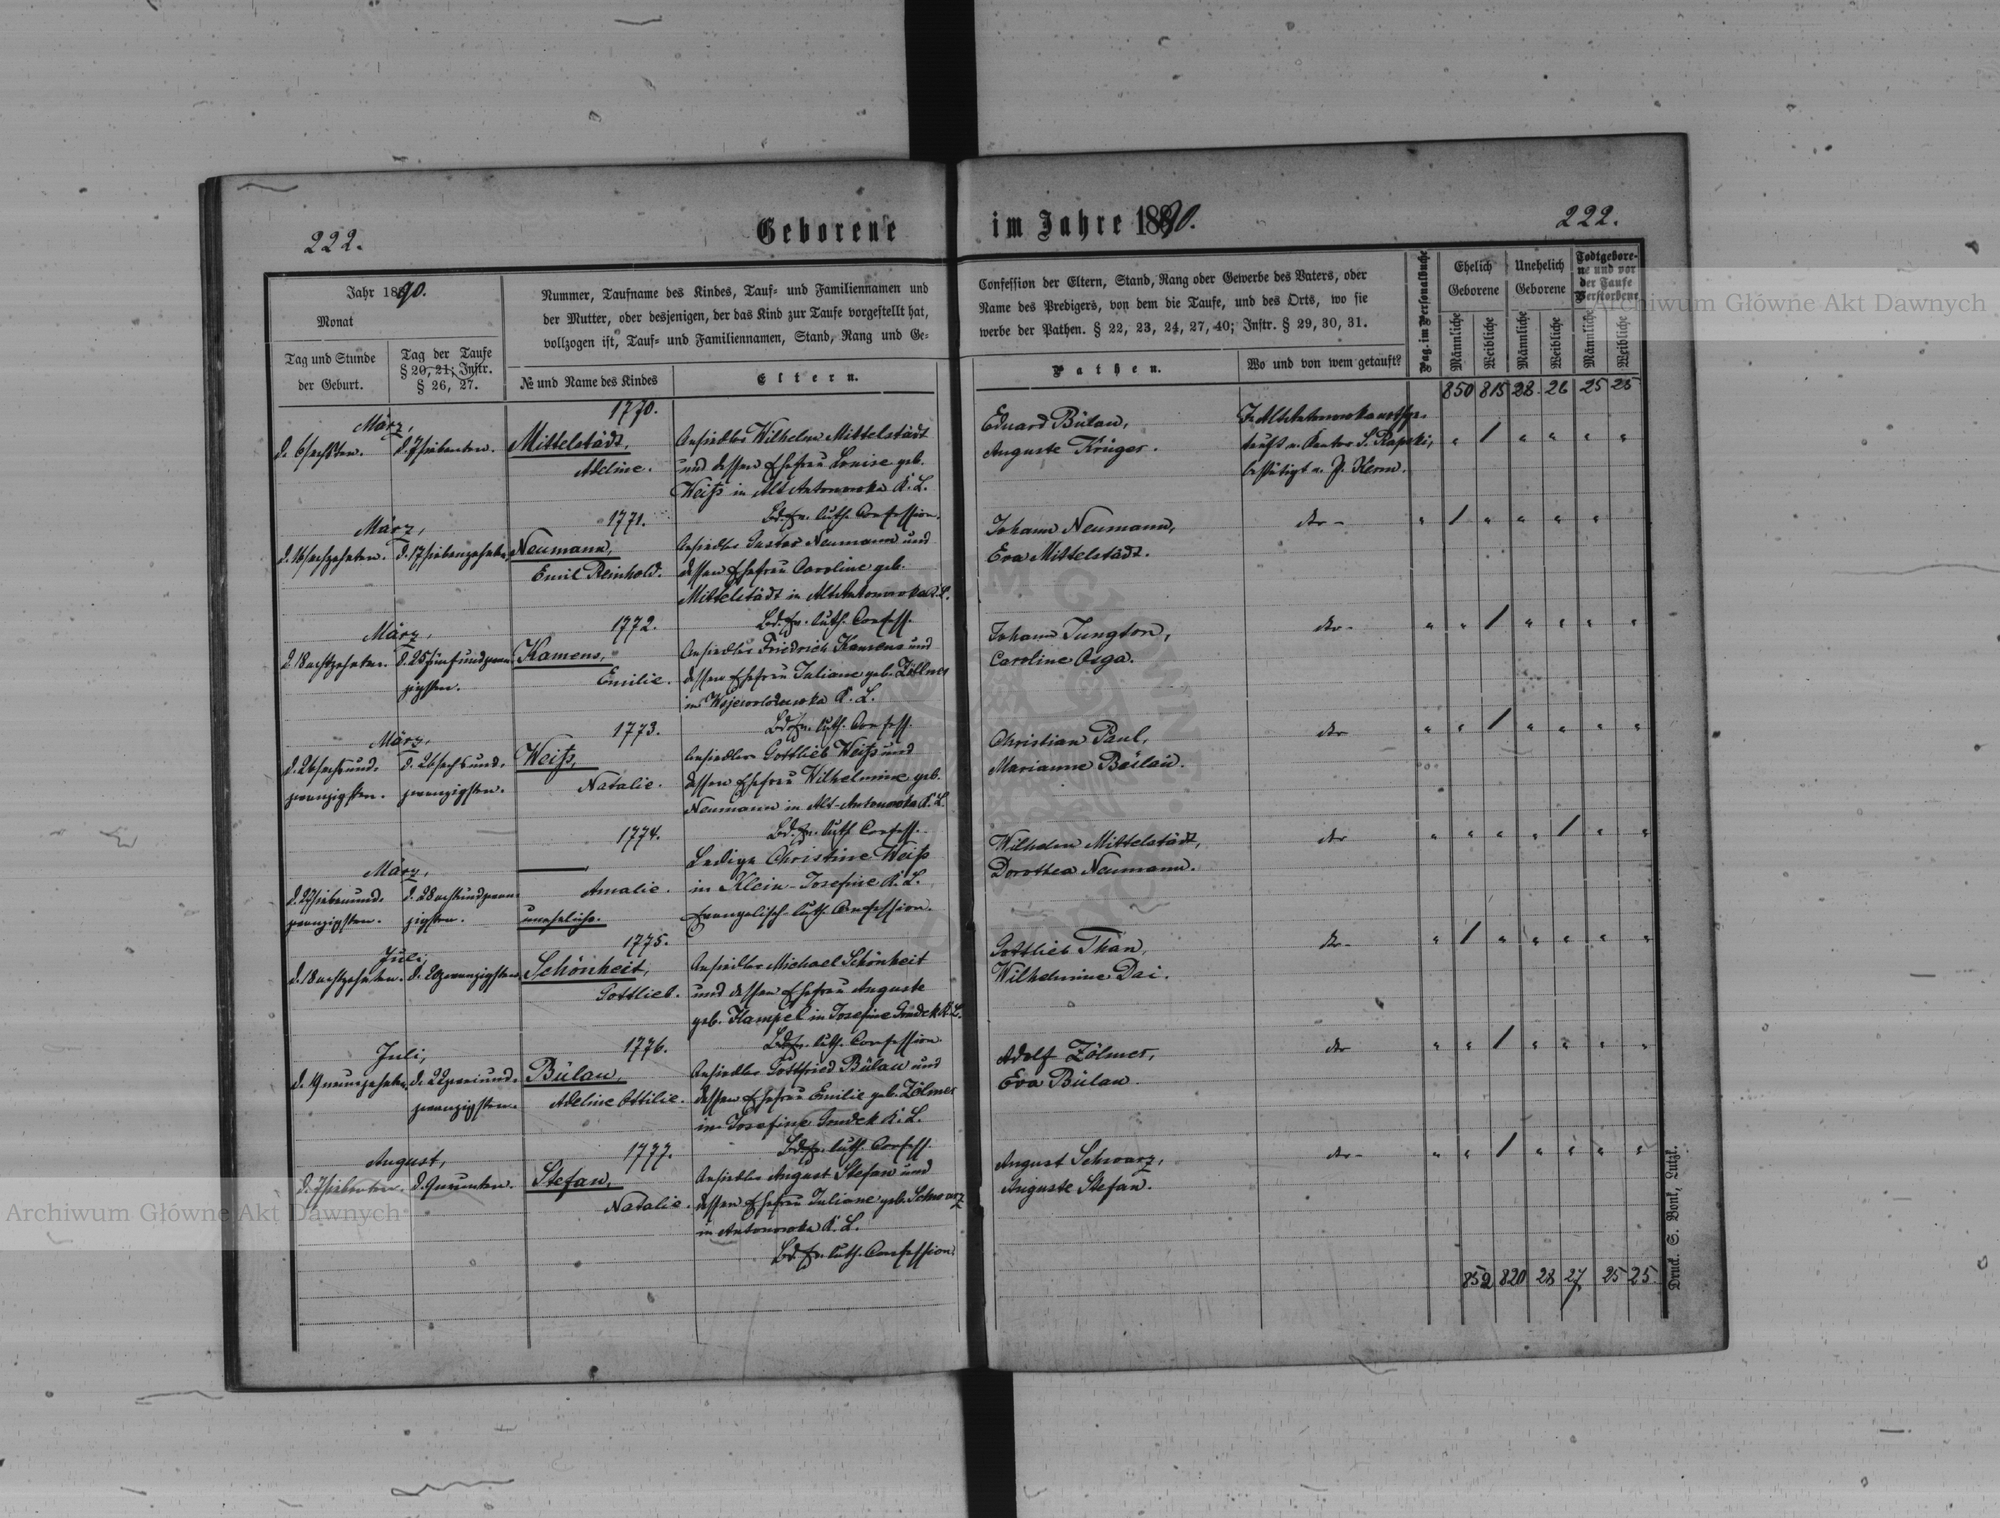 222.
Geborene
im Jahre 1890.
222.
Jahr 1890.
Monat
Tag und Stunde
der Geburt.
Tag der Taufe
§ 20, 21; Instr.
§ 26, 27.
Nummer, Taufname des Kindes, Tauf- und Familiennamen und
der Mutter, oder desjenigen, der das Kind zur Taufe vorgestellt hat,
vollzogen ist, Tauf- und Familiennamen, Stand, Rang und Ge-
№ und Name des Kindes
Eltern.
Confession der Eltern, Stand, Rang oder Gewerbe des Vaters, oder
Name des Predigers, von dem die Taufe, und des Orts, wo sie
werbe der Pathen. § 22, 23, 24, 27, 40; Instr. § 29, 30, 31.
Pathen.
Wo und von wem getauft?
Pag. im Personalbuche
Ehelich
Geborene
Unehelich
Geborene
Todtgebore-
ne und vor
der Taufe
Verstorbene
Männliche
Weibliche
Männliche
Weibliche
Männliche
Weibliche
850 815 28 26 25 25
März,
d. 6 sechsten.
d. 7 siebenten.
1770.
Mittelstädt,
Adeline.
Ansiedler Wilhelm Mittelstädt
und dessen Ehefrau Louise geb.
Weiß in Alt Antonowka K. L.
Bd. Ev. luth. Confession.
Eduard Bülau,
Auguste Krüger.
In Alt Antonowka nothge-
tauft v. Kantor S.
bestätigt v. P. Kerm.
März,
d. 16 sechzehnten.
d. 17 siebenzehnten
1771.
Neumann,
Emil Reinhold.
Ansiedler Gustav Neumann und
dessen Ehefrau Caroline geb.
Mittelstädt in Alt Antonowka K. L.
Bd. Ev. luth. Confess.
Johann Neumann,
Eva Mittelstädt.
dto -
März,
d. 18 achtzehnten.
d. 25 fünfundzwan-
zigsten.
1772.
Kamens,
Emilie.
Ansiedler Friedrich Kamens und
dessen Ehefrau Juliane geb. Zöllmer
in K. L.
Bd. Ev. luth. Confess.
Johann Jungton,
Caroline Osga.
dto -
März,
d. 26 sechsund-
zwanzigsten.
d. 26 sechsund-
zwanzigsten.
1773.
Weiß,
Natalie.
Ansiedler Gottlieb Weiß und
dessen Ehefrau Wilhelmine geb.
Neumann in Alt-Antonowka K. L.
Bd. Ev. luth Confess.
Christian Paul,
Marianne Bülau.
dto
März,
d. 27 siebenund-
zwanzigsten.
d. 28 achtundzwan-
zigsten.
1774.
Amalie.
uneheliche.
Ledige Christine Weiß
in Klein-Josefine K. L.
Evangelisch-luth. Confession.
Wilhelm Mittelstädt,
Dorothea Neumann.
dto
Juli,
d. 18 achtzehnten.
d. 20 zwanzigsten
1775.
Schönheit,
Gottlieb.
Ansiedler Michael Schönheit
und dessen Ehefrau Auguste
geb. Hampel in Josefine Grudek K. L.
Bd. Ev. luth. Confession.
Gottlieb Than,
Wilhelmine Dai.
dto -
Juli,
d. 19 neunzehnten
d. 22 zweiund-
zwanzigsten.
1776.
Bülau,
Adeline Ottilie.
Ansiedler Gottfried Bülau und
dessen Ehefrau Emilie geb. Zölmer
in Josefine Grudek K. L.
Bd. Ev. luth. Confess
Adolf Zölmer,
Eva Bülau.
dto
August,
d. 7 siebenten.
d. 9 neunten.
1777.
Stefan,
Natalie.
Ansiedler August Stefan und
dessen Ehefrau Juliane geb. Schwarz
in Antonowka K. L.
Bd. Ev. luth. Confession.
August Schwarz,
Auguste Stefan.
dto -
852 820 28 27 25 25
Druck. S. Bonk, Lutzk.
Archiwum Główne Akt Dawnych
Archiwum Główne Akt Dawnych